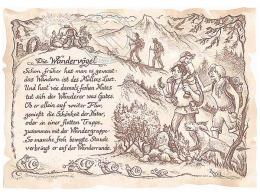 Die Wandervögel
Schon früher hat man es gewusst:
das Wandern ist des Müllers Lust.
Und heut wie damals frohen Mutes
tut sich der Wanderer was Gutes.
Ob er allein auf weiter Flur,
genießt die Schönheit der Natur,
oder in einer flotten Truppe,
zusammen mit der Wandergruppe.
So manche froh bewegte Stunde
verbringt er auf der Wanderrunde.